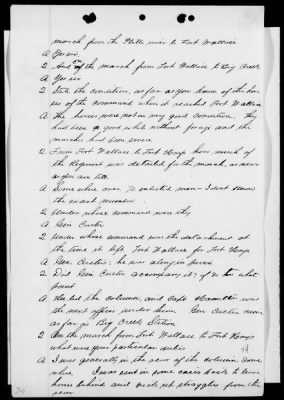 march from the Platte river to Fort Wallace
A Yes sir.
2 And on the march from Fort Wallace to Big Creek
A Yes sir
2 State the condition, as far as you know of the hor-
ses of the command when it reached Fort Wallace
A The horses were not in very good condition. They
had been a good while without forage and the
marches had been severe
2 From Fort Wallace to Fort Harker how much of
the Regiment was detailed for the march, as near
as you can tell
A Some where over 70 enlisted men - I dont know
the exact number
2 Under whose command was they
A Gen Custer
2 Under whose command was the detachment at
the time it left Fort Wallace for Fort Harker
A Gen. Custer; he was along in person
2 Did Gen Custer accompany it; if so to what
point
A He led the column, and Capt Hamilton was
the next officer under him. Gen Custer came
as far as Big Creek Station
2 On the march from Fort Wallace to Fort Hays
what were your particular duties
A I was generally in the rear of the column some
where. I was sent in some cases back to some
horse behind and pick up stragglers from the
rear